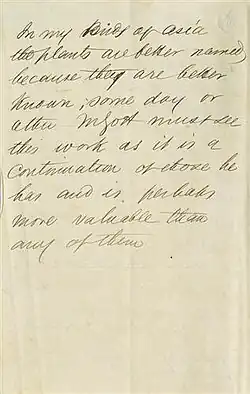 In my Birds of asia
the plants are better named
because they are better
known; some day or
other must see
this work as it is a
continuation of those he
has and is perhaps
more valuable than
any of them